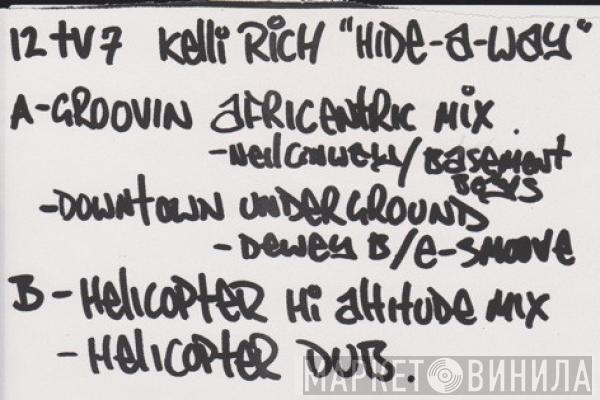 12tv7 Kelli RicH "HiDE-A-WAY"
A-GROOVIN AFRICENTRIC MiX.
-Neil Conwell/BASEMENT
BOYS
-DOWNTOWN UNDERGROUND
- DEWEY B/E-SMOOVE
B - HELICOPTER Hi AltitUDE MiX
- HELICOPTER DUB.
МАРКЕТ ВИНИЛА